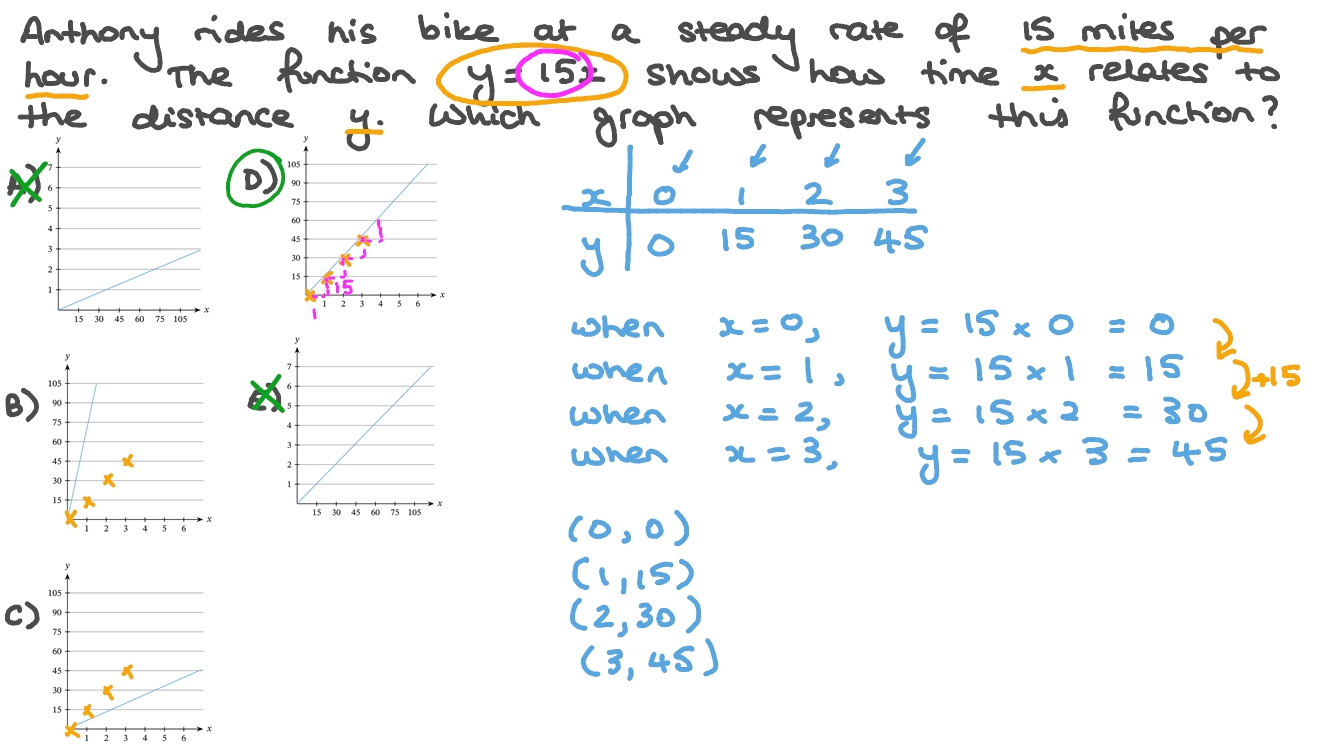 Anthony rides his bike at a steady rate of 15 miles per
hour. The function y = 15x shows how time x relates to
the distance y. Which graph represents this function?
A)
y
7
6
5
4
3
2
1
15 30 45 60 75 105 x
D)
y
105
90
75
60
45
30
15
1 2 3 4 5 6 x
1
15
B)
y
105
90
75
60
45
30
15
1 2 3 4 5 6 x
E)
y
7
6
5
4
3
2
1
15 30 45 60 75 105 x
C)
y
105
90
75
60
45
30
15
1 2 3 4 5 6 x
x 0 1 2 3
y 0 15 30 45
when x = 0, y = 15 × 0 = 0
when x = 1, y = 15 × 1 = 15
when x = 2, y = 15 × 2 = 30
when x = 3, y = 15 × 3 = 45
+15
(0, 0)
(1, 15)
(2, 30)
(3, 45)